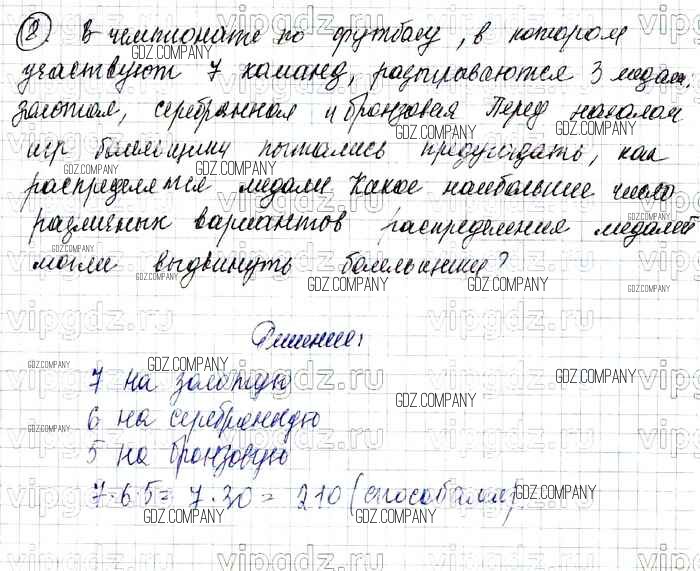 2. В чемпионате по футболу, в котором
участвуют 7 команд, разыгрываются 3 медали:
золотая, серебрянная и бронзовая Перед началом
игр болельщики пытались предугадать, как
распределятся медали Какое наибольшее число
различных вариантов распределения медалей
могли выдвинуть болельщики?
Решение:
7 на золотую
6 на серебрянную
5 на бронзовую
7·6·5= 7·30 = 210 (способами).
GDZ.COMPANY
vipgdz.ru